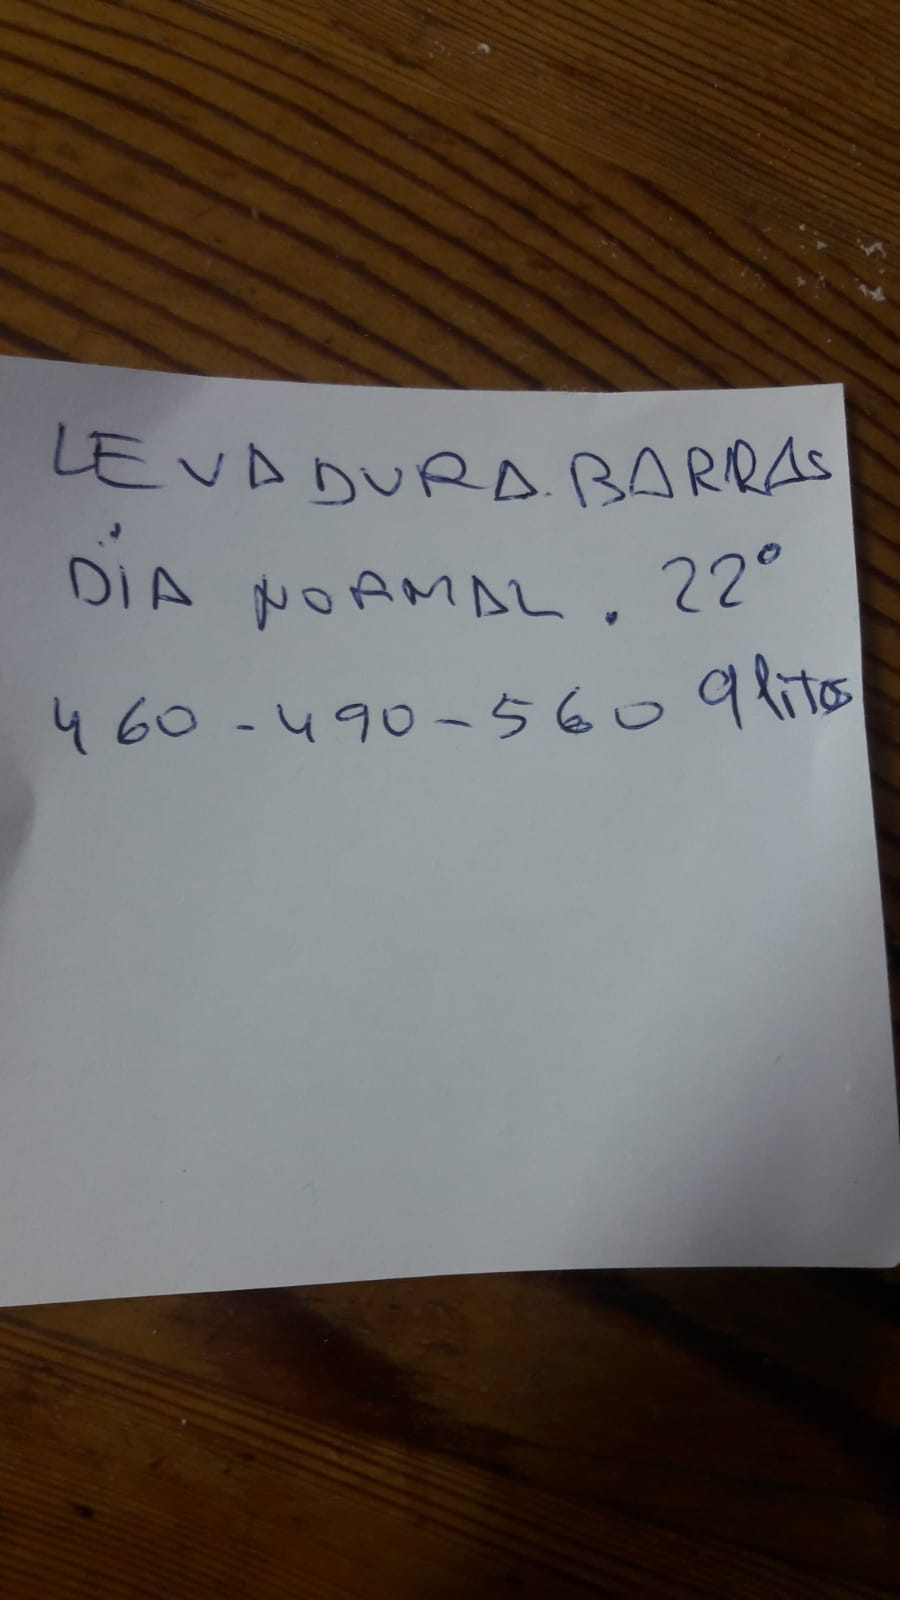 LEVADURA. BARRAS
DÍA NORMAL. 22º
460-490-560 9 litos